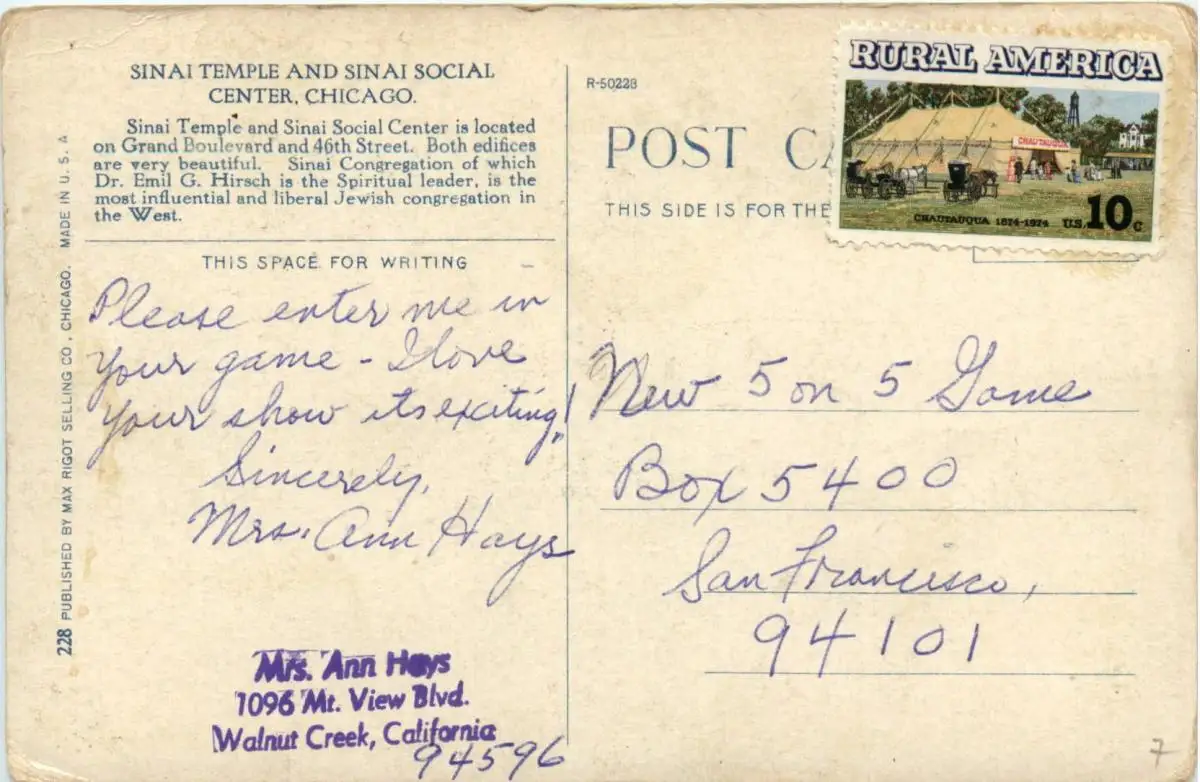 SINAI TEMPLE AND SINAI SOCIAL
CENTER, CHICAGO.
Sinai Temple and Sinai Social Center is located
on Grand Boulevard and 46th Street. Both edifices
are very beautiful. Sinai Congregation of which
Dr. Emil G. Hirsch is the Spiritual leader, is the
most influential and liberal Jewish congregation in
the West.
THIS SPACE FOR WRITING
Please enter me in
your game - I love
your show its exciting!
Sincerely,
Mrs. Ann Hays
Mrs. Ann Hays
1096 Mt. View Blvd.
Walnut Creek, California
94596
228 PUBLISHED BY MAX RIGOT SELLING CO., CHICAGO. MADE IN U. S. A
R-50228
POST CA
THIS SIDE IS FOR THE
RURAL AMERICA
CHAUTAUQUA
CHAUTAUQUA 1874-1974 U.S. 10c
New 5 on 5 Game
Box 5400
San Francisco,
94101
7